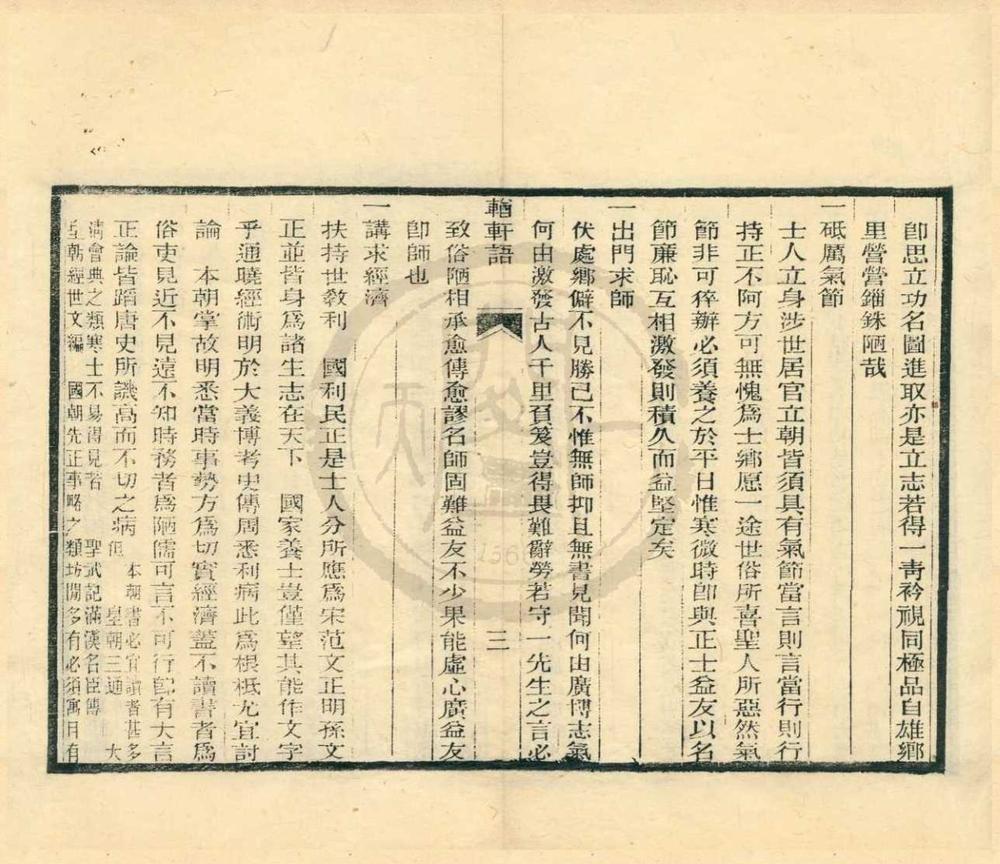 卽思立功名圖進取亦是立志若得一靑衿視同極品自雄鄉
里營營錙銖陋哉
一砥厲氣節
士人立身涉世居官立朝皆須具有氣節當言則言當行則行
持正不阿方可無愧爲士鄉愿一途世俗所喜聖人所惡然氣
節非可猝辦必須養之於平日惟寒微時卽與正士益友以名
節廉恥互相激發則積久而益堅定矣
一出門求師
伏處鄉僻不見勝己不惟無師抑且無書見聞何由廣博志氣
何由激發古人千里負笈豈得畏難辭勞若守一先生之言必
輶軒語 三
致俗陋相承愈傳愈謬名師固難益友不少果能虛心廣益友
卽師也
一講求經濟
扶持世敎利 國利民正是士人分所應爲宋范文正明孫文
正並皆身爲諸生志在天下 國家養士豈僅望其能作文字
乎通曉經術明於大義博考史傳周悉利病此爲根柢尤宜討
論 本朝掌故明悉當時事勢方爲切實經濟蓋不讀書者爲
俗吏見近不見遠不知時務者爲陋儒可言不可行卽有大言
正論皆蹈唐史所譏高而不切之病
本朝書必宜讀者甚多
但 皇朝三通 大
淸會典之類寒士不易得見若 聖武記滿漢名臣傳
皇朝經世文編 國朝先正事略之類坊閒多有必須寓目有